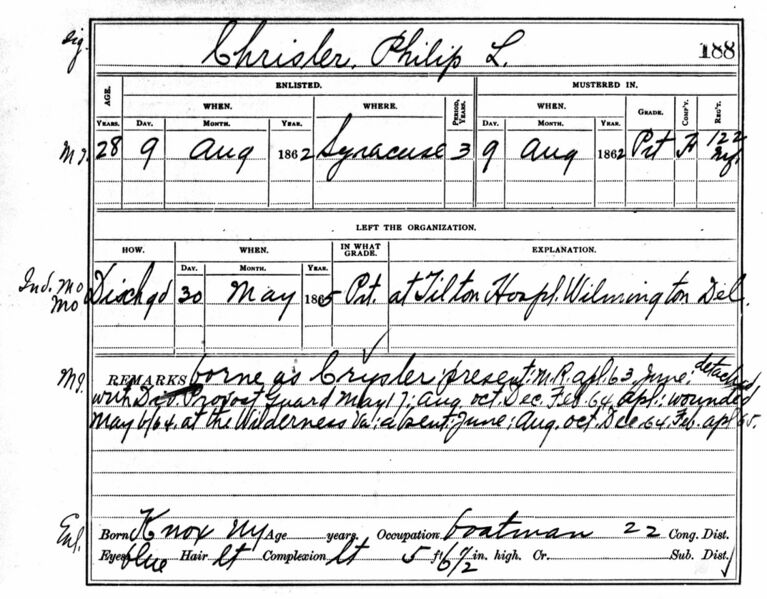 sig. Chrisler, Philip L. 188
AGE. ENLISTED. MUSTERED IN.
WHEN. WHERE. PERIOD, YEARS. WHEN. GRADE. COMP'Y. REG'T.
YEARS. DAY. MONTH. YEAR. DAY. MONTH. YEAR.
M.I. 28 9 Aug 1862 Syracuse 3 9 Aug 1862 Pvt A 122 Ny.
LEFT THE ORGANIZATION.
HOW. WHEN. IN WHAT GRADE. EXPLANATION.
DAY. MONTH. YEAR.
Ind. Mo Mo Dischgd 30 May 1865 Pvt. at Tilton Hospl. Wilmington Del.
M.I. REMARKS borne as Crysler; present; M.R. apl. 63 June; detached
with Div. Provost Guard May 17; Aug. Oct. Dec. Feb. 64 apl; wounded
May 6/64, at the Wilderness Va; absent; June; Aug, Oct. Dec. 64 Feb. apl 65.
Enl. Born Knox Ny Age years. Occupation boatman 22 Cong. Dist.
Eyes blue Hair lt Complexion lt 5 ft 6 1/2 in. high. Cr. Sub. Dist.